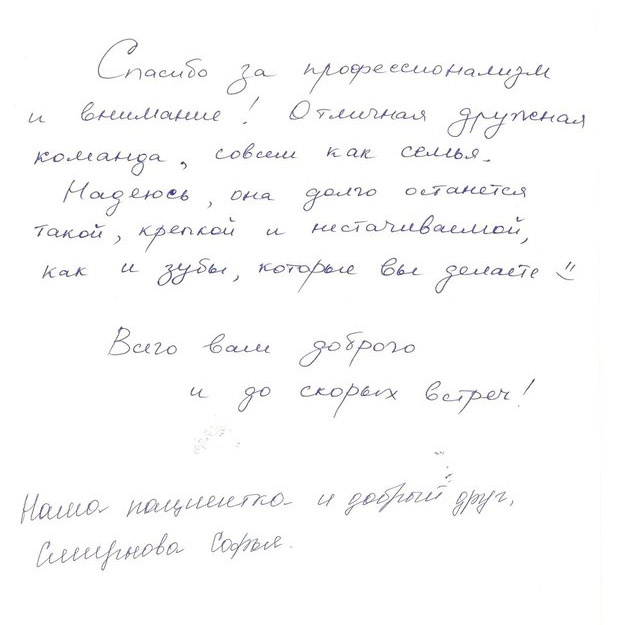 Спасибо за профессионализм
и внимание! Отличная дружная
команда, совсем как семья.
Надеюсь, она долго останется
такой, крепкой и нестачиваемой,
как и зубы, которые вы делаете :)
Всего вам доброго
и до скорых встреч!
Наша пациентка и добрый друг,
Смирнова Софья.